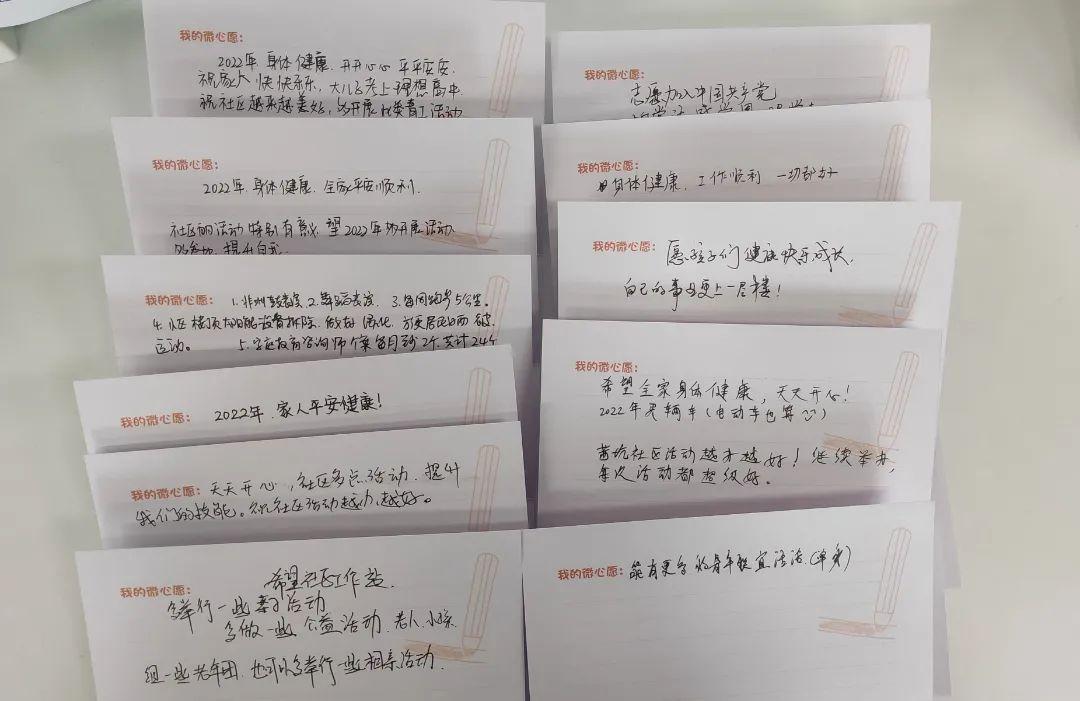 我的微心愿：
2022年 身体健康，开开心心 平平安安，
祝家人 快快乐乐，大儿子考上理想高中
祝社区越来越美好，多开展此类
活动
我的微心愿：
2022年，身体健康、全家平安顺利，
社区的活动特别有意义，望2022年多开展活动
多参加，提升自己
我的微心愿： 1.非洲鼓 2. 3.每周 5公里
4.小区楼顶太阳能设备拆除，做好绿化，方便居民
运动。 5.家庭教育咨询师个案每月到2个，共计24个
我的微心愿： 2022年，家人平安健康！
我的微心愿： 天天开心，社区多点活动，提升
我们的技能。祝社区活动越办越好。
我的微心愿： 希望社区工作站
多举行一些亲子活动
多做一些公益活动，老人、小孩
组一些老年团，也可以多举行一些相亲活动，
我的微心愿：
志愿加入中国共产党
我的微心愿：
身体健康，工作顺利 一切都好
我的微心愿： 愿孩子们健康快乐成长，
自己的事业更上一层楼！
我的微心愿：
希望全家身体健康，天天开心！
2022年 辆车（电动车也算）
社区活动越来越好！继续举办，
每次活动都超级好。
我的微心愿： 能有更多的青年联谊活动（单身）